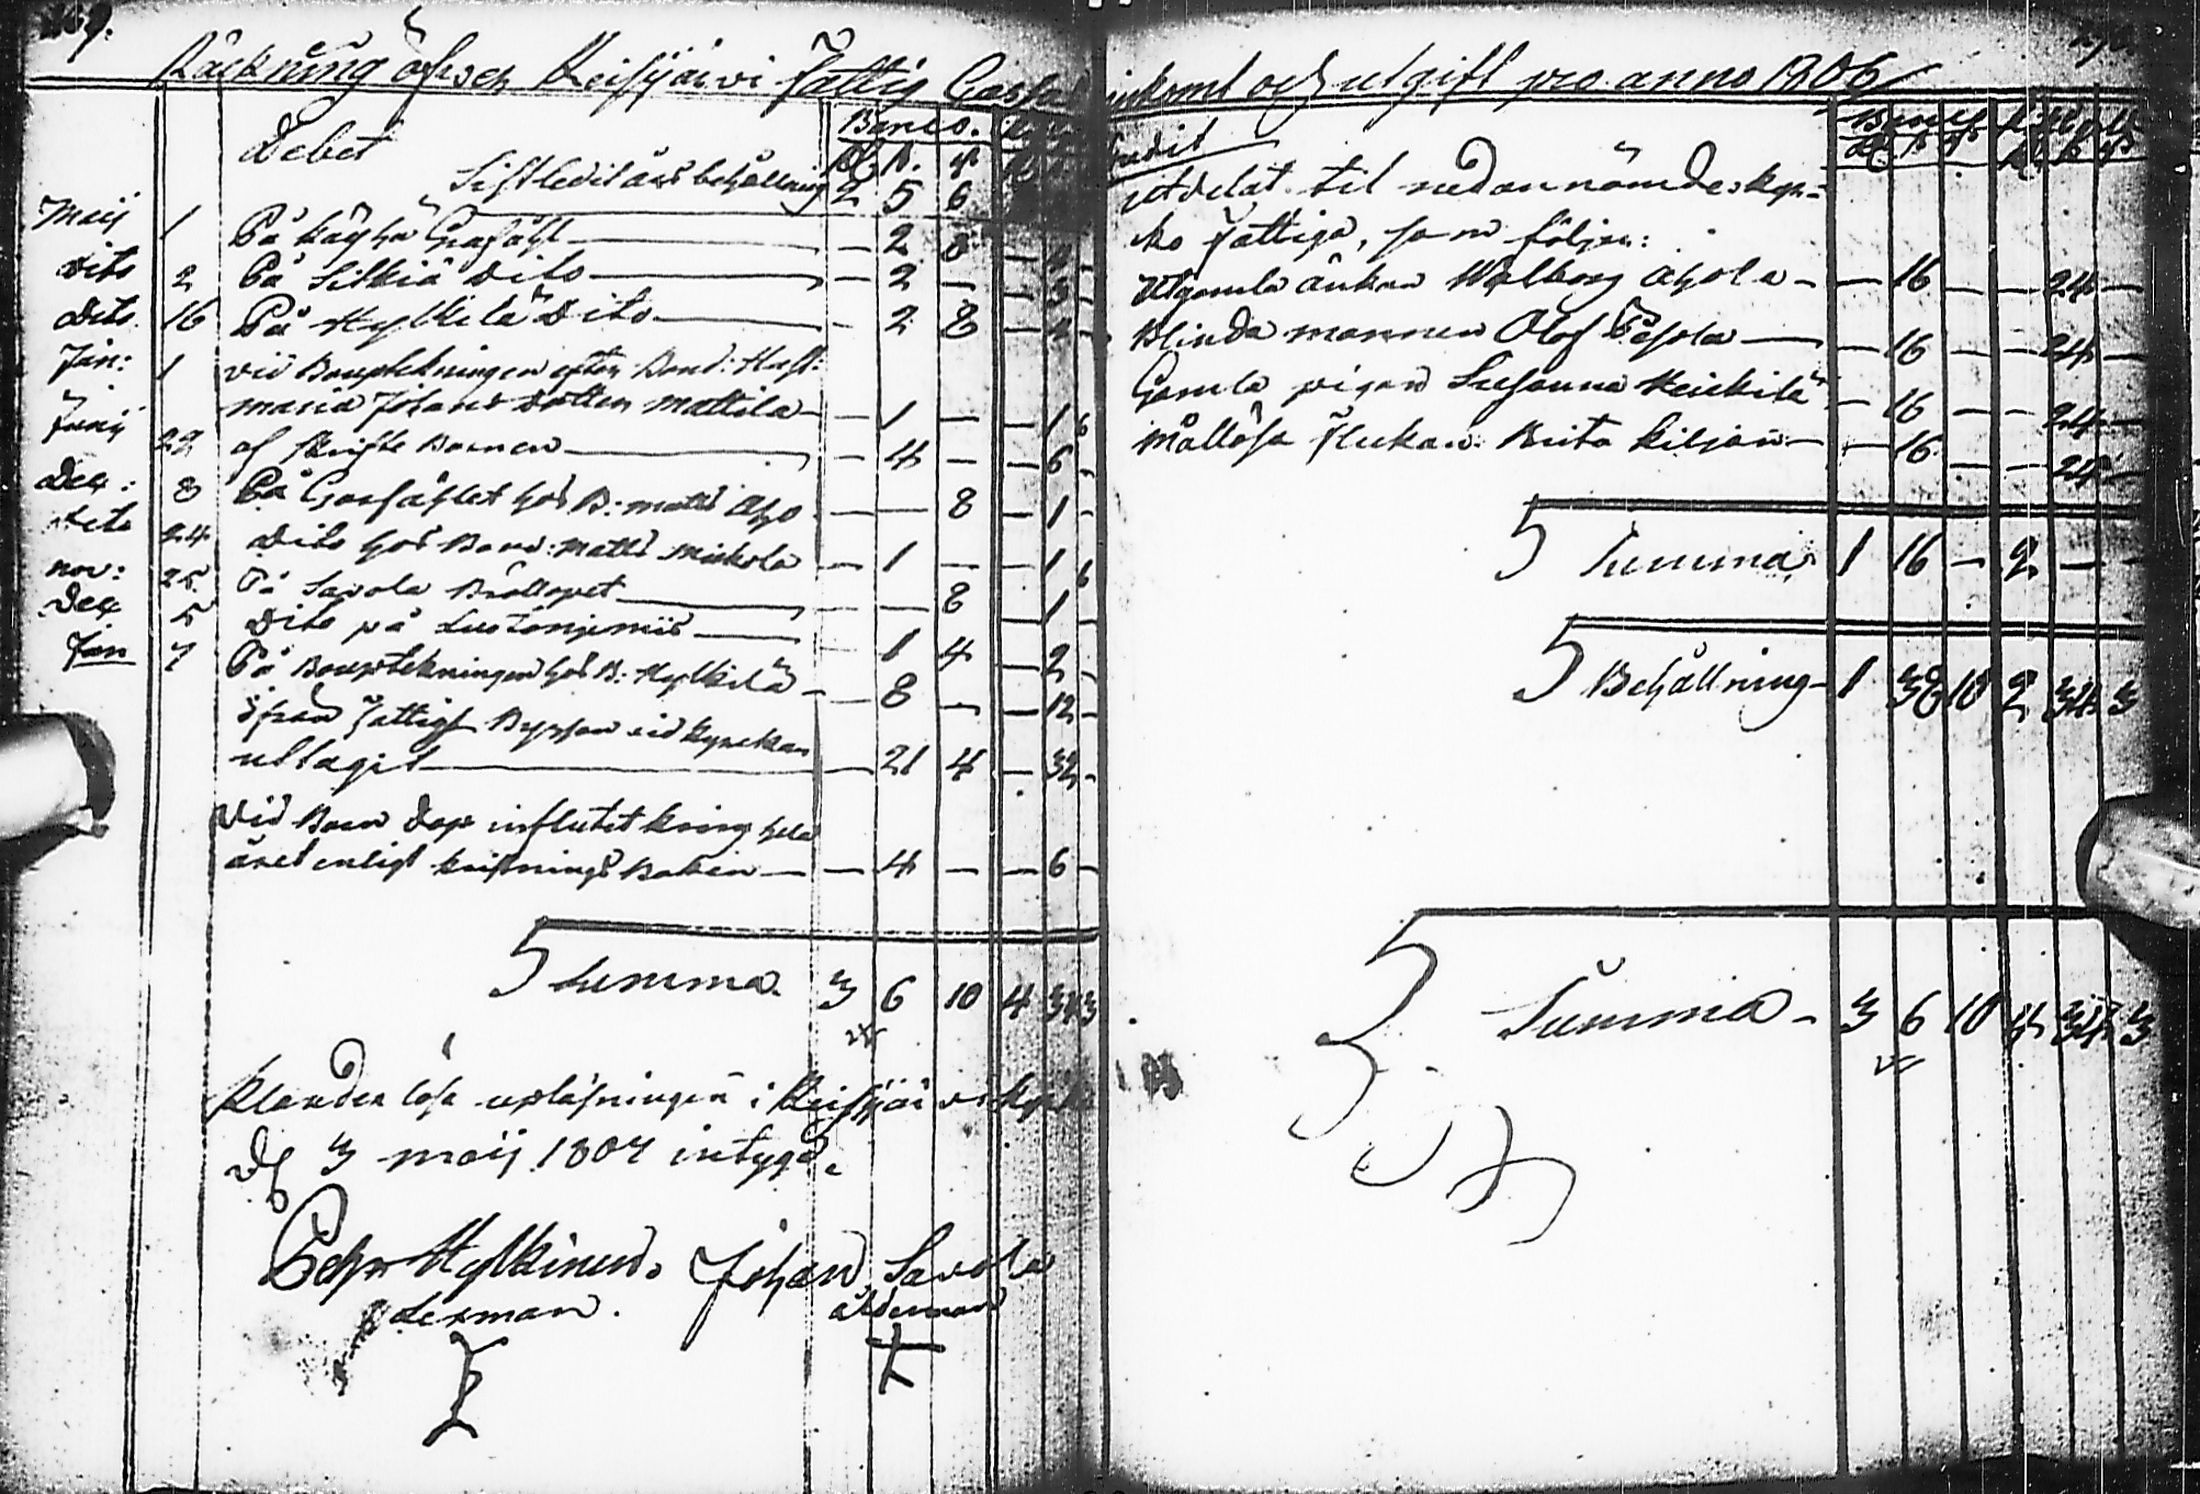 Räckning öfwer Reisjärvi Fattig Cassans inkomst och utgift pro anno 1806
Debet
Banco.
Rd. ß. rst
Sistledit års behållning 2 5 6
Maij 1 På käyhä Grafööhl — 2 8
Dito 2 På Sitkiä Dito — 2 — — 3 -
Dito 16 På Hylkilä Dito — 2 8 — 4 -
Jan: 1 vid Bouptekningen efter Bond: Hust:
maria Johans dotter Mattila — 1 — — 1 6
Junij 29 af Skrifte Barnen — 4 — — 6 -
Dec: 8 På Grafööhlet hos B: matts Aho — — 8 — 1 -
Dito 24 Dito hos Bond: Matts Miekola — 1 — — 1 6
nov: 25 På Savola Bröllopet — — 8 — 1 -
Dec 5 Dito på Luotonjemis — 1 4 — 2 -
Jan 7 På Bouptekningen hos B: Hylkilä — 8 — — 12 -
ifrån Fattigs Byssan vid kyrckan
uttagit — 21 4 — 32 -
Vid Barn Dop influtit kring hela
året enligt kristnings Boken — 4 — — 6 -
Summa 3 6 10 4 34 3
Klanderlösa uplåsningen i Reisjärvi kyrka
d 3 maij 1807 intyga
Pehr Hylkinen. Johan Savola
Lexman. ålderman
Credit
Banco
Utdelat til nedannämde kyr=
ko Fattiga, som följer:
Utgamla änkan Walborg Ahola — 16 — — 24 —
Blinda mannen Olof Pehola — 16 — — 24 —
Gamla pigan Susanna Heickilä — 16 — — 24 —
Mållösa Flickan Brita Kiljan — 16 — — 24 —
Summa 1 16 — 2 — —
Behållning 1 38 10 2 34 3
Summa — 3 6 10 4 34 3